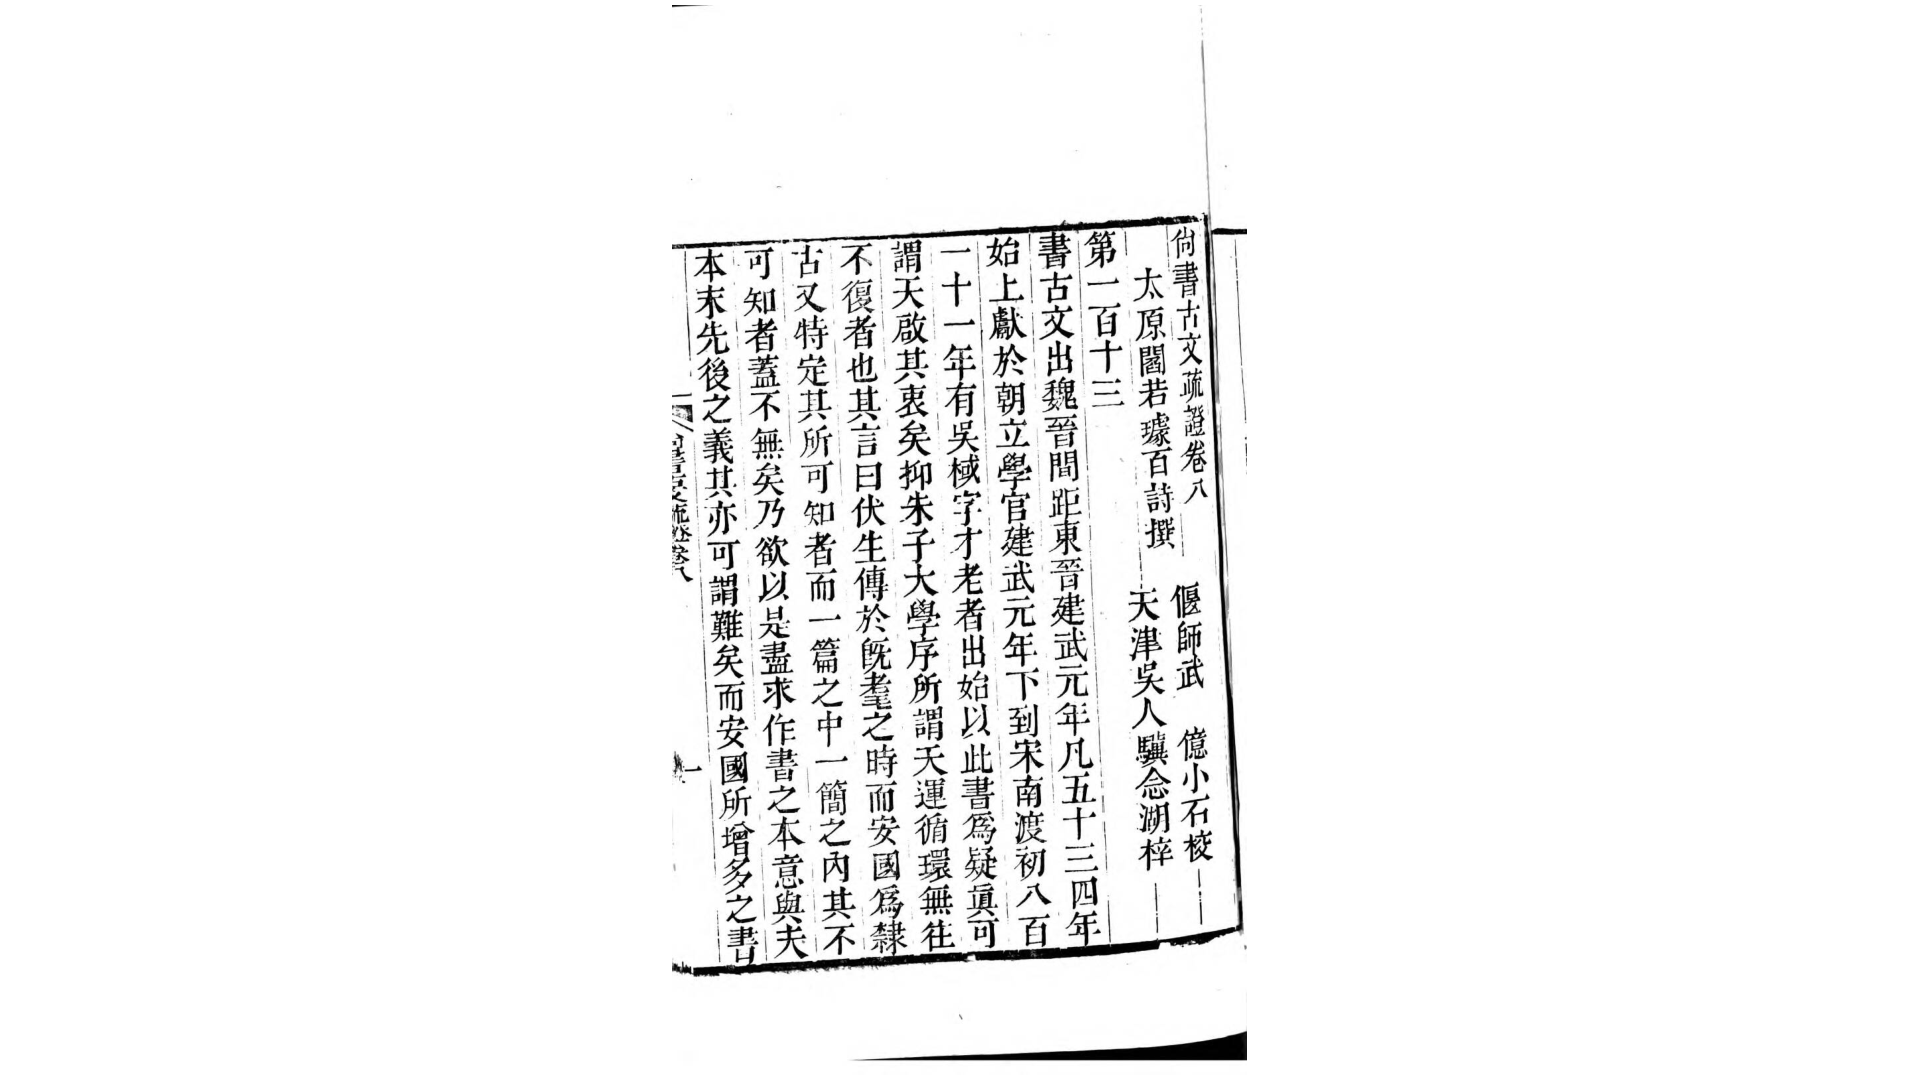 尚書古文疏證卷八
偃師武 億小石校
太原閻若璩百詩撰
天津吳人驥念湖梓
第一百十三
書古文出魏晉間距東晉建武元年凡五十三四年
始上獻於朝立學官建武元年下到宋南渡初八百
一十一年有吳棫字才老者出始以此書爲疑眞可
謂天啟其衷矣抑朱子大學序所謂天運循環無往
不復者也其言曰伏生傳於旣耄之時而安國爲隸
古又特定其所可知者而一篇之中一簡之內其不
可知者蓋不無矣乃欲以是盡求作書之本意與夫
本末先後之義其亦可謂難矣而安國所增多之書
尚書古文疏證卷八
一